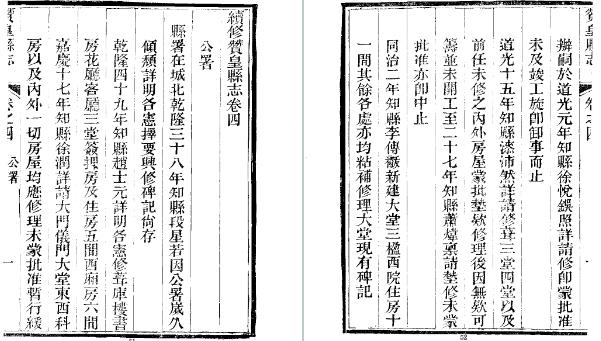 續修贊皇縣志卷四
公署
縣署在城北乾隆三十八年知縣段星若因公署歲久
傾頹詳明各憲擇要興修碑記尚存
乾隆四十九年知縣趙士元詳明各憲修葺庫樓書
房花廳客廳三堂簽押房及住房五間西廂房六間
嘉慶十七年知縣徐潤詳請大門儀門大堂東西科
房以及內外一切房屋均應修理未蒙批准暫行緩
贊皇縣志 卷之四 公署 一
辦嗣於道光元年知縣徐悅照詳請修卽蒙批准
未及竣工旋卽卸事而止
道光十五年知縣漆沛然詳請修葺三堂四堂以及
前任未修之內外房屋蒙批墊欵修理後因無欵可
籌並未開工至二十七年知縣蕭稟請墊修未蒙
批准亦卽中止
同治二年知縣李傳黻新建大堂三楹西院住房十
一間其餘各處亦均粘補修理大堂現有碑記